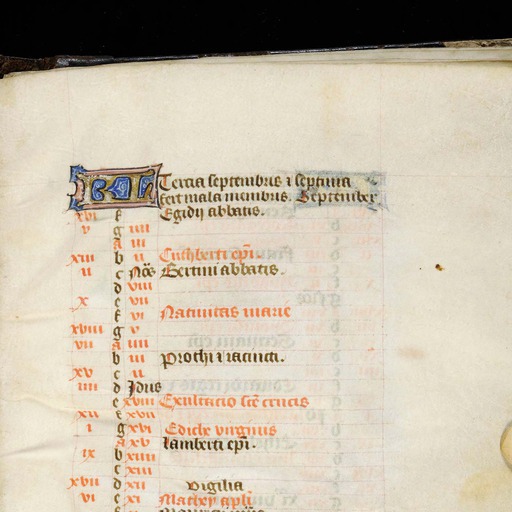 KL Tercia septembris ⁊ septima
fert mala menibus. September
xvi f Egidij abbatis.
v g iiii
a iii
xiii b ii Cuthberti ep̄i.
ii c Nōs Bertini abbatis.
d viii
x e vii
f vi Natiuitas marie
xviii g v
vii a iiii
b iii Prothi ⁊ iacincti.
xv c ii
iiii d Idus
e xviii Exultacio sc̄e crucis
xii f xvii
i g xvi Edithe virginis
a xv lamberti ep̄i.
ix b xiiii
c xiii
xvii d xii vigilia
vi e xi Mathey apl̄i